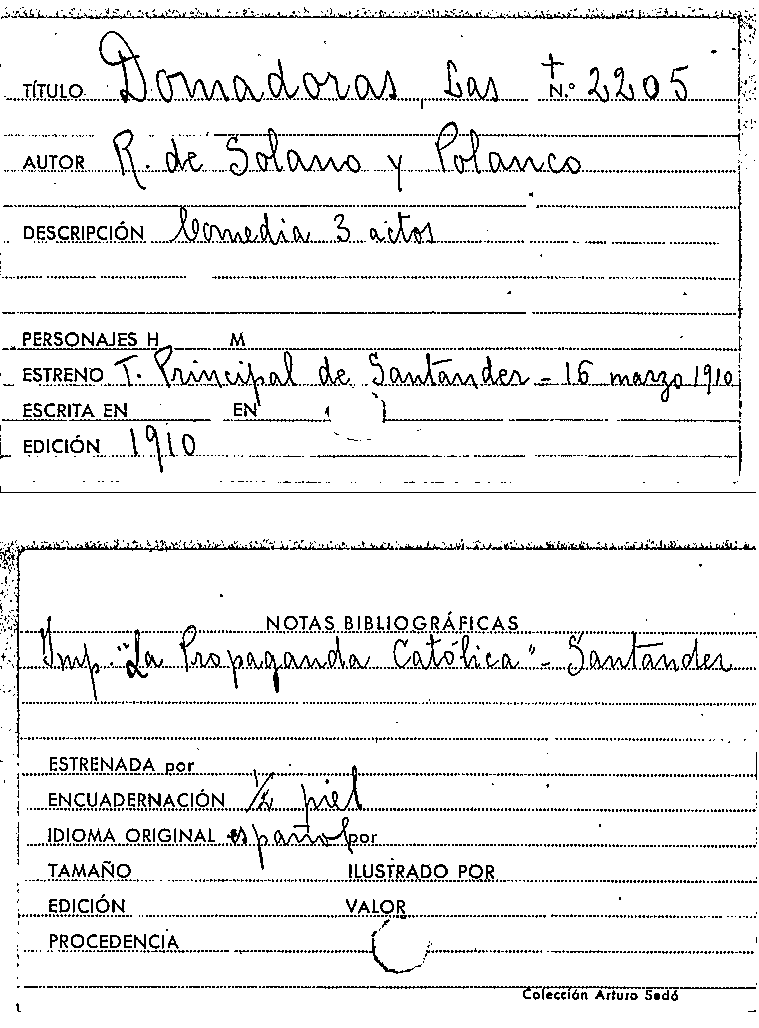 TÍTULO Domadoras, Las + N.º 2205
AUTOR R. de Solano y Polanco
DESCRIPCIÓN Comedia 3 actos
PERSONAJES H M
ESTRENO T. Principal de Santander - 16 marzo 1910
ESCRITA EN EN
EDICIÓN 1910
NOTAS BIBLIOGRÁFICAS
Imp. "La Propaganda Católica" - Santander
ESTRENADA por
ENCUADERNACIÓN 1/2 piel
IDIOMA ORIGINAL español por
TAMAÑO ILUSTRADO POR
EDICIÓN VALOR
PROCEDENCIA
Colección Arturo Sedó